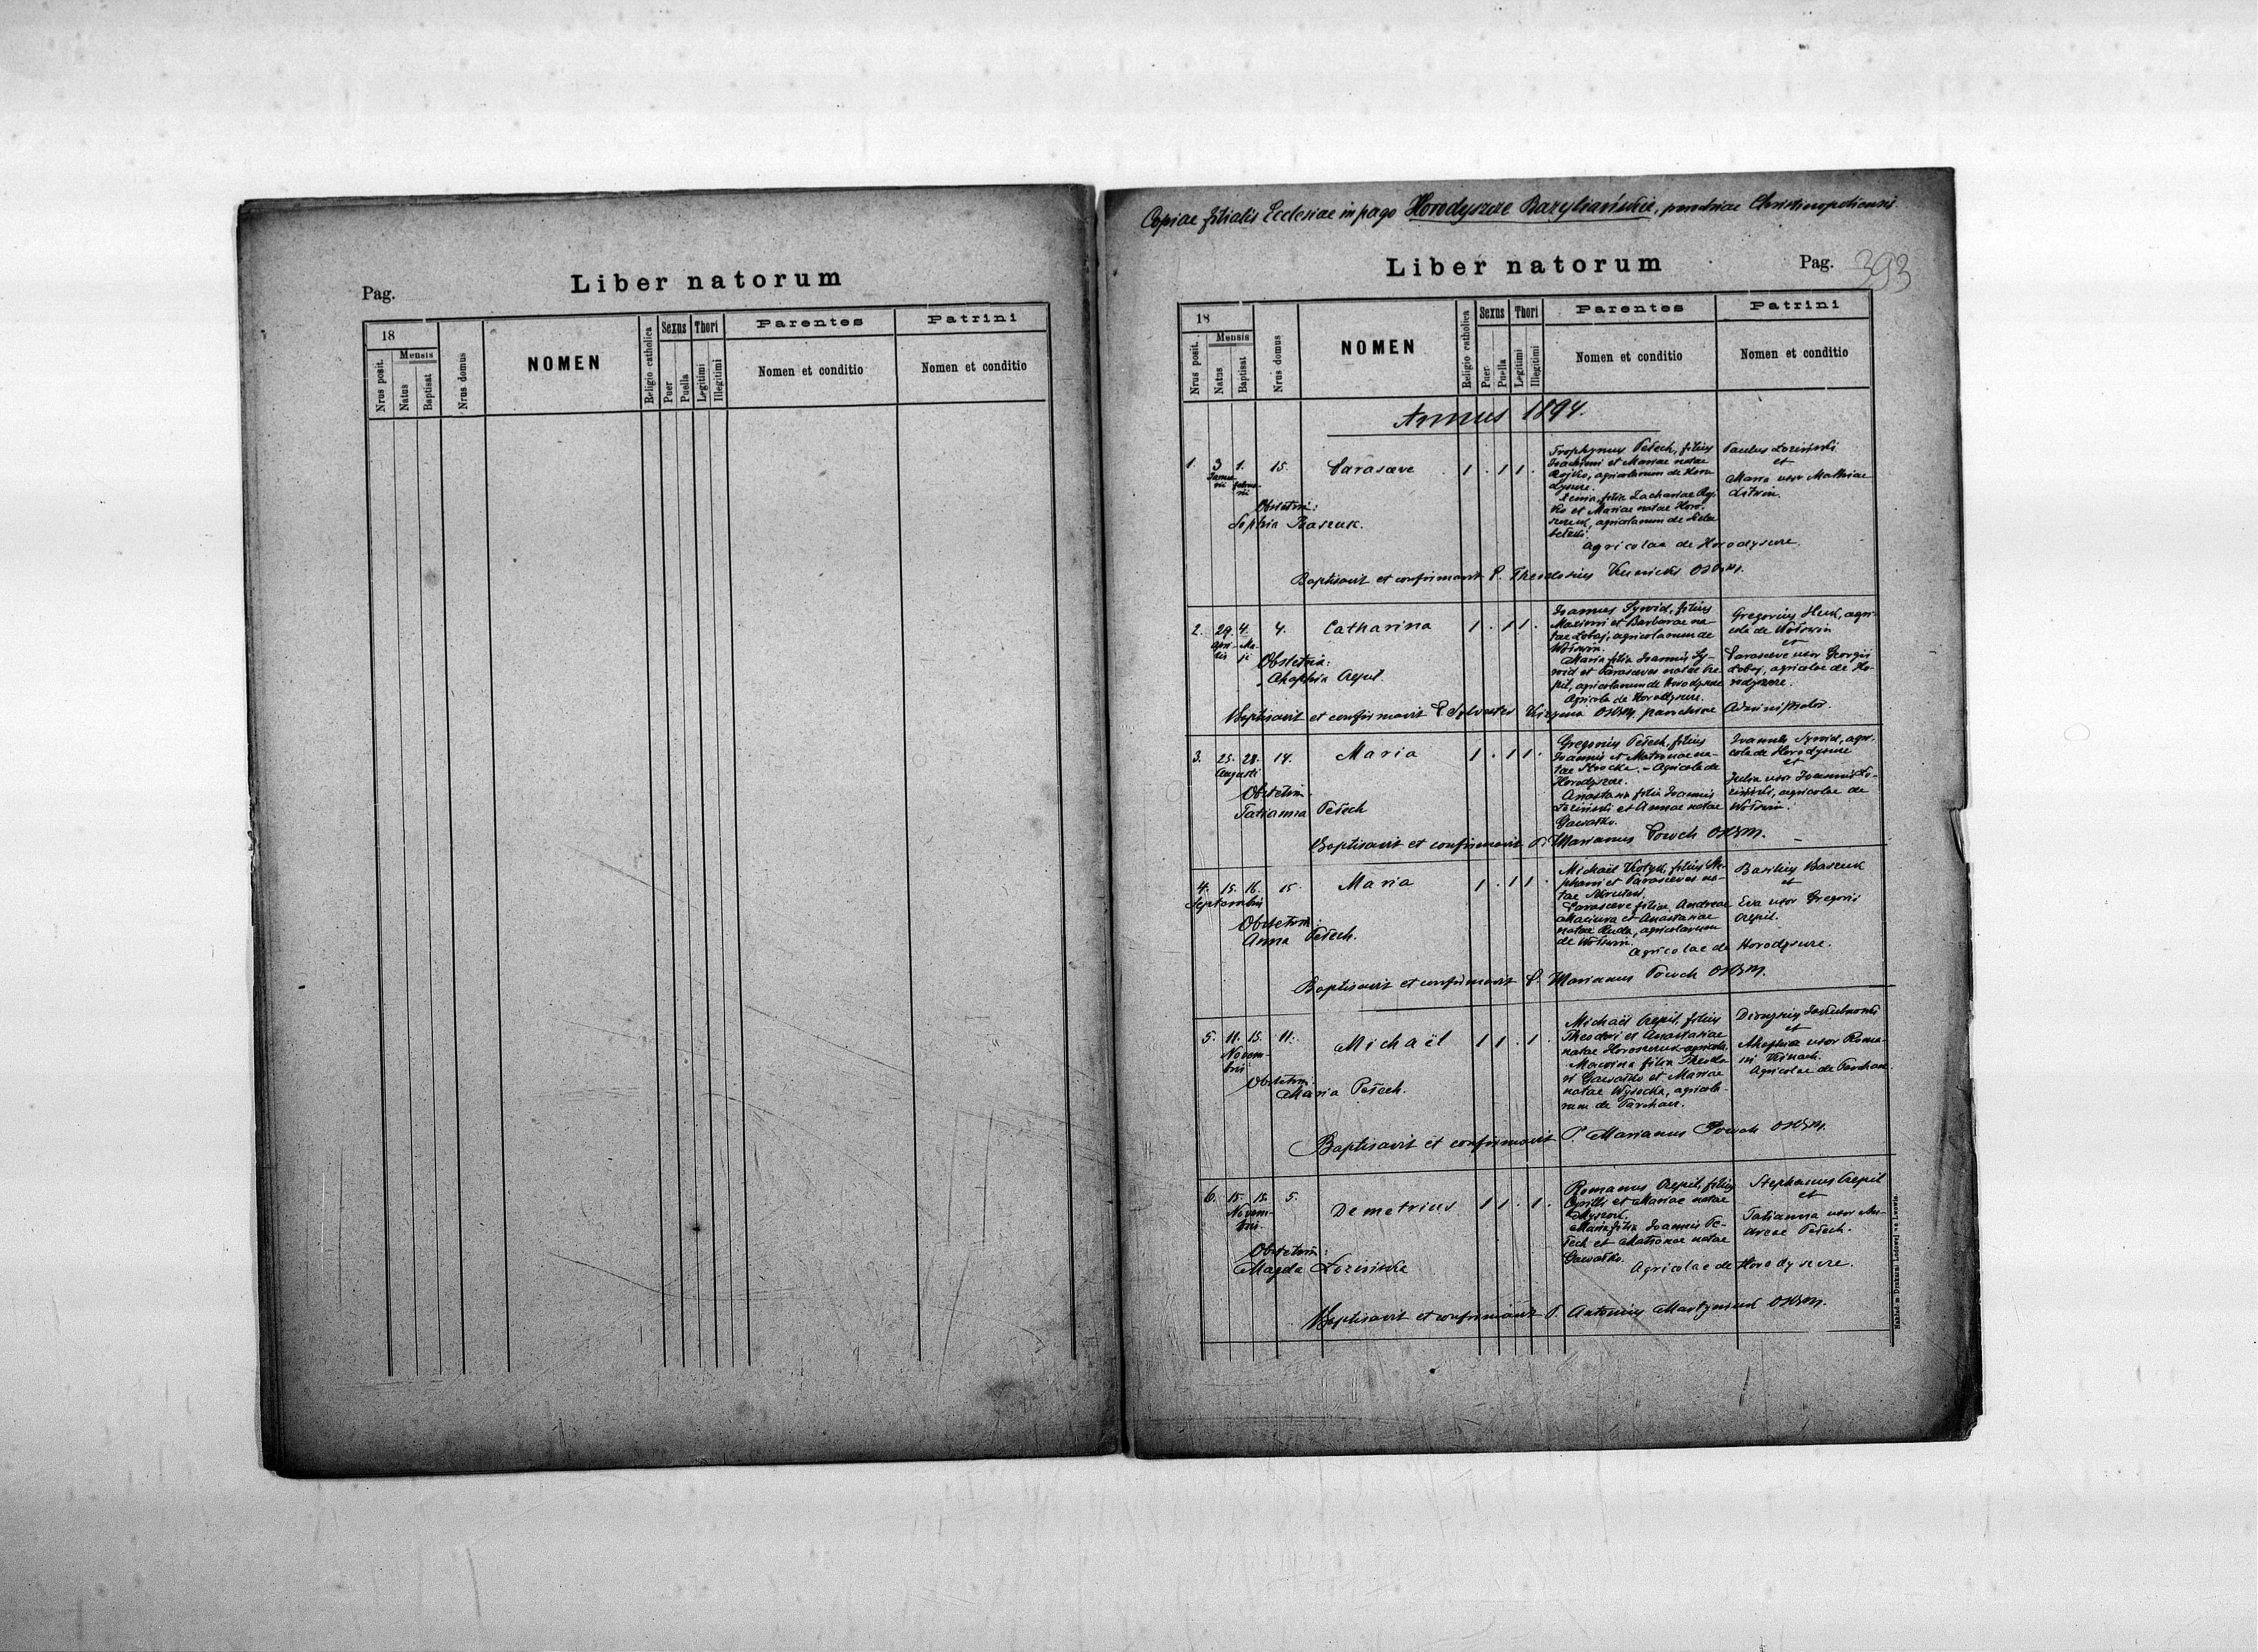 Pag.
Liber natorum
18
Mensis
Nrus posit.
Natus
Baptisat
Nrus domus
NOMEN
Religio catholica
Sexus
Puer
Puella
Thori
Legitimi
Illegitimi
Parentes
Nomen et conditio
Patrini
Nomen et conditio
Copiae filialis Ecclesiae in pago Horodyszcze Bazyliańskie, parochiae Christinopoliensis
Liber natorum
Pag. 393
18
Mensis
Nrus posit.
Natus
Baptisa
Nrus domus
NOMEN
Religio catholica
Sexus
Puer
Puella
Thori
Legitimi
Illegitimi
Parentes
Nomen et conditio
Patrini
Nomen et conditio
Annus 1894.
1. 3 1. 15. Parasceve 1 . 1 1 .
Januarii Februarii
Obstetrix:
Sophia Baszuk.
Trophymus Pełech, filius
Joachimi et Mariae natae
Rojko, agricolarum de Horo-
dyszcze.
Xenia, filia Zachariae Roj-
ko et Mariae natae Horo-
szczuk, agricolarum de
Agricolae de Horodyszcze.
Paulus Łoziński
et
Maria uxor Mathiae
Litwin.
Baptisavit et confirmavit P. Theodosius OSBM.
2. 29. 4. 4. Catharina 1 . 1 1 .
Aprilis Maji
Obstetrix:
Ahaphia Crepil.
Joannes Sywid, filius
Maximi et Barbarae na-
tae Łobaj, agricolarum de
Wołświn.
Maria filia Joannis Sy-
wid et Parasceves natae Cre-
pil, agricolarum de Horodyszcze
Agricola de Horodyszcze.
Gregorius Huk, agri-
cola de Wołświn
et
Parasceve uxor Georgii
Łobaj, agricolae de Ho-
rodyszcze.
Baptisavit et confirmavit P. Sylvester OSBM. parochiae Administrator.
3. 25. 28. 14. Maria 1 . 1 1 .
Augusti
Obstetrix
Tatianna Pełech
Gregorius Pełech, filius
Joannis et Matronae na-
tae - Agricola de
Horodyszcze.
Anastasia filia Joannis
Łoziński et Annae natae
Gawałko.
Joannes Sywid, agri-
cola de Horodyszcze
et
Julia uxor Joannis Ło-
ziński, agricolae de
Wołświn.
Baptisavit et confirmavit P. Marianus Powch OSBM.
4. 15. 16. 15. Maria 1 . 1 1 .
Septembris
Obstetrix:
Anna Pełech.
Michaël filius Ste-
phani et Parasceves na-
tae
Parasceve filia Andreae
Maciura et Anastasiae
natae Ruda, agricolarum
de Wołświn.
Agricolae de Horodyszcze.
Basilius Baszuk
et
Eva uxor Gregorii
Crepil.
Baptisavit et confirmavit P. Marianus Powch OSBM.
5. 11. 15. 11. Michaël 1 1 . 1 .
Novem-
bris
Obstetrix:
Maria Pełech.
Michaël Crepil, filius
Theodori et Anastasiae
natae Horoszczuk agricola.
Macrina filia Theodo-
ri Gawałko et Mariae
natae Wysocka, agricola-
rum de Parchacz.
Dionysius
et
Ahaphia uxor Roma-
ni
Agricolae de Parchacz.
Baptisavit et confirmavit P. Marianus Powch OSBM.
6. 15. 18. 5. Demetrius 1 1 . 1 .
Novem-
bris.
Obstetrix:
Magda Łozińska
Romanus Crepil, filius
Cyrilli et Mariae natae
Maria filia Joannis Pe-
łech et Matronae natae
Gawałko.
Agricolae de Horodyszcze.
Stephanus Crepil
et
Tatianna uxor An-
dreae Pełech.
Baptisavit et confirmavit P. Antonius Martyniuk OSBM.